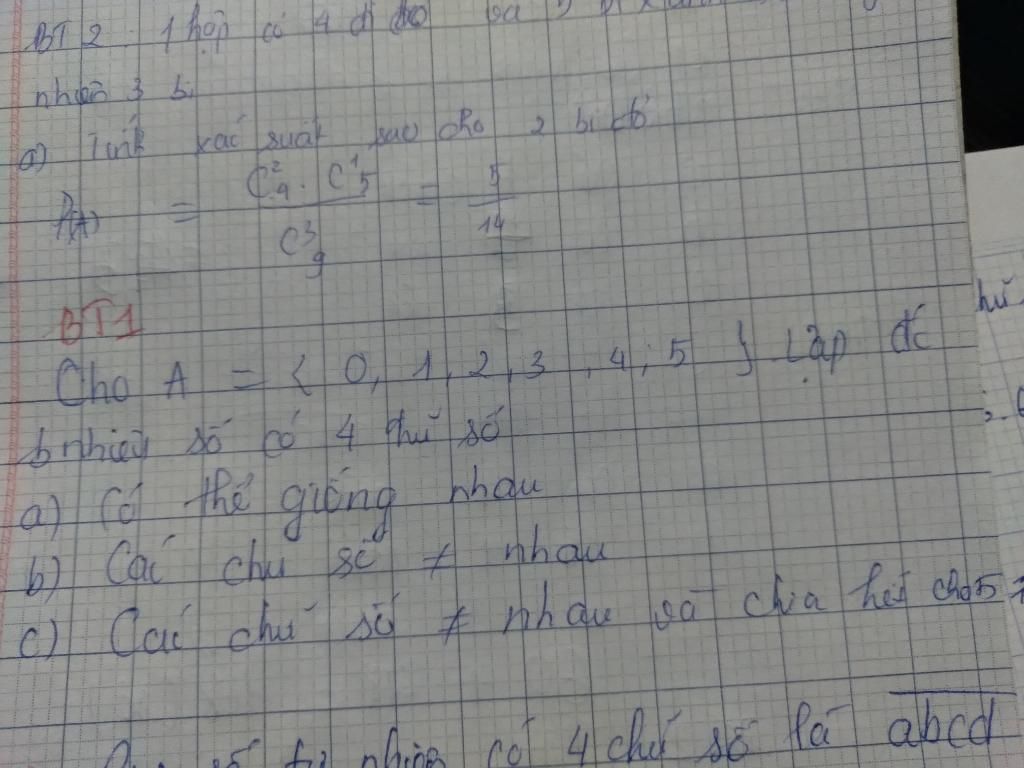 BT 2. 1 hộp có 4 bi đỏ và 5 bi xanh
nhiên 3 bi
a) Tính xác suất sao cho 2 bi đỏ
P(A) = C²₄ . C¹₅ / C³₉ = 5/14
BT1
Cho A = { 0, 1, 2, 3, 4, 5 } Lập đc
b nhiêu số có 4 chữ số
a) Có thể giống nhau
b) Các chữ số ≠ nhau
c) Các chữ số ≠ nhau và chia hết cho 5
số tự nhiên có 4 chữ số là abcd